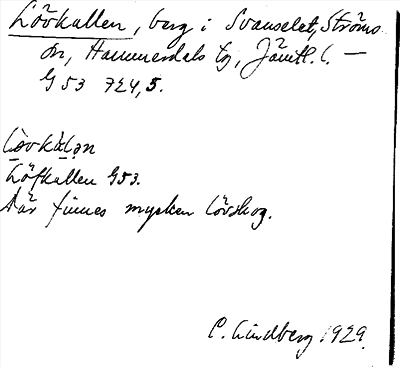 Lövkallen, berg i Svanselet, Ströms
sn, Hammerdals tg, Jämtl. l. —
G 53 724,5.
Lövkal̥ən
Löfkallen G53.
Där finnes mycken lövskog.
C. Lindberg 1929.